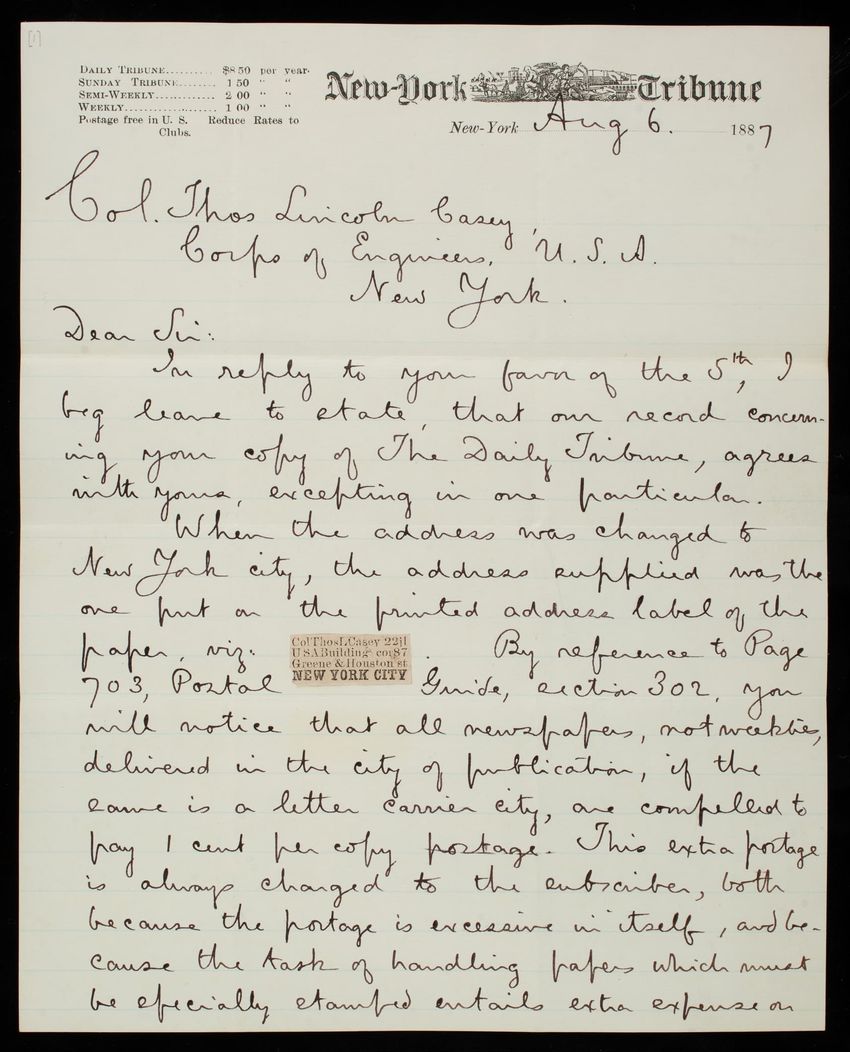 [1]
DAILY TRIBUNE.......... $8 50 per year.
SUNDAY TRIBUNE........ 1 50 " "
SEMI-WEEKLY.............. 2 00 " "
WEEKLY...................... 1 00 " "
Postage free in U. S. Reduce Rates to
Clubs.
New-York Tribune
New-York Aug 6. 1887
Col. Thos Lincoln Casey,
Corps of Engineers, U. S. A.
New York.
Dear Sir:
In reply to your favor of the 5th, I
beg leave to state, that our record concern-
ing your copy of The Daily Tribune, agrees
with yours, excepting in one particular.
When the address was changed to
New York city, the address supplied was the
one put on the printed address label of the
paper, viz: Col Thos L Casey 22jl
U S A Building co187
Greene & Houston st
NEW YORK CITY
. By reference to Page
703, Postal Guide, section 302, you
will notice that all newspapers, not weeklies,
delivered in the city of publication, if the
same is a letter carrier city, are compelled to
pay 1 cent per copy postage. This extra postage
is always charged to the subscriber, both
because the postage is excessive in itself, and be-
cause the task of handling papers which must
be specially stamped entails extra expense on